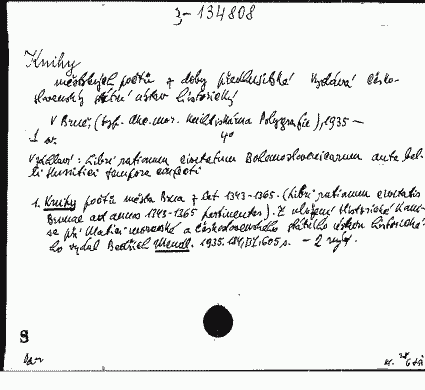 2-134808
Knihy
městských počtů z doby předhusitské Vydává Česko-
slovenský státní ústav historický
V Brně, (typ. Akc. mor. knihtiskárna Polygrafie), 1935 —
4°
1 sv.
V záhlaví: Libri rationum civitatum Bohemoslovenicarum ante bel-
li Hussitici tempora confecti
1. Knihy počtů města Brna z let 1343-1365. (Libri rationum civitatis
Brunae ad annos 1343-1365 pertinentes). Z uložení Historické Komi-
se při Matici moravské a Československého státního ústavu historické-
ho vydal Bedřich Mendl. 1935. 605 s. — 2 mp.
S